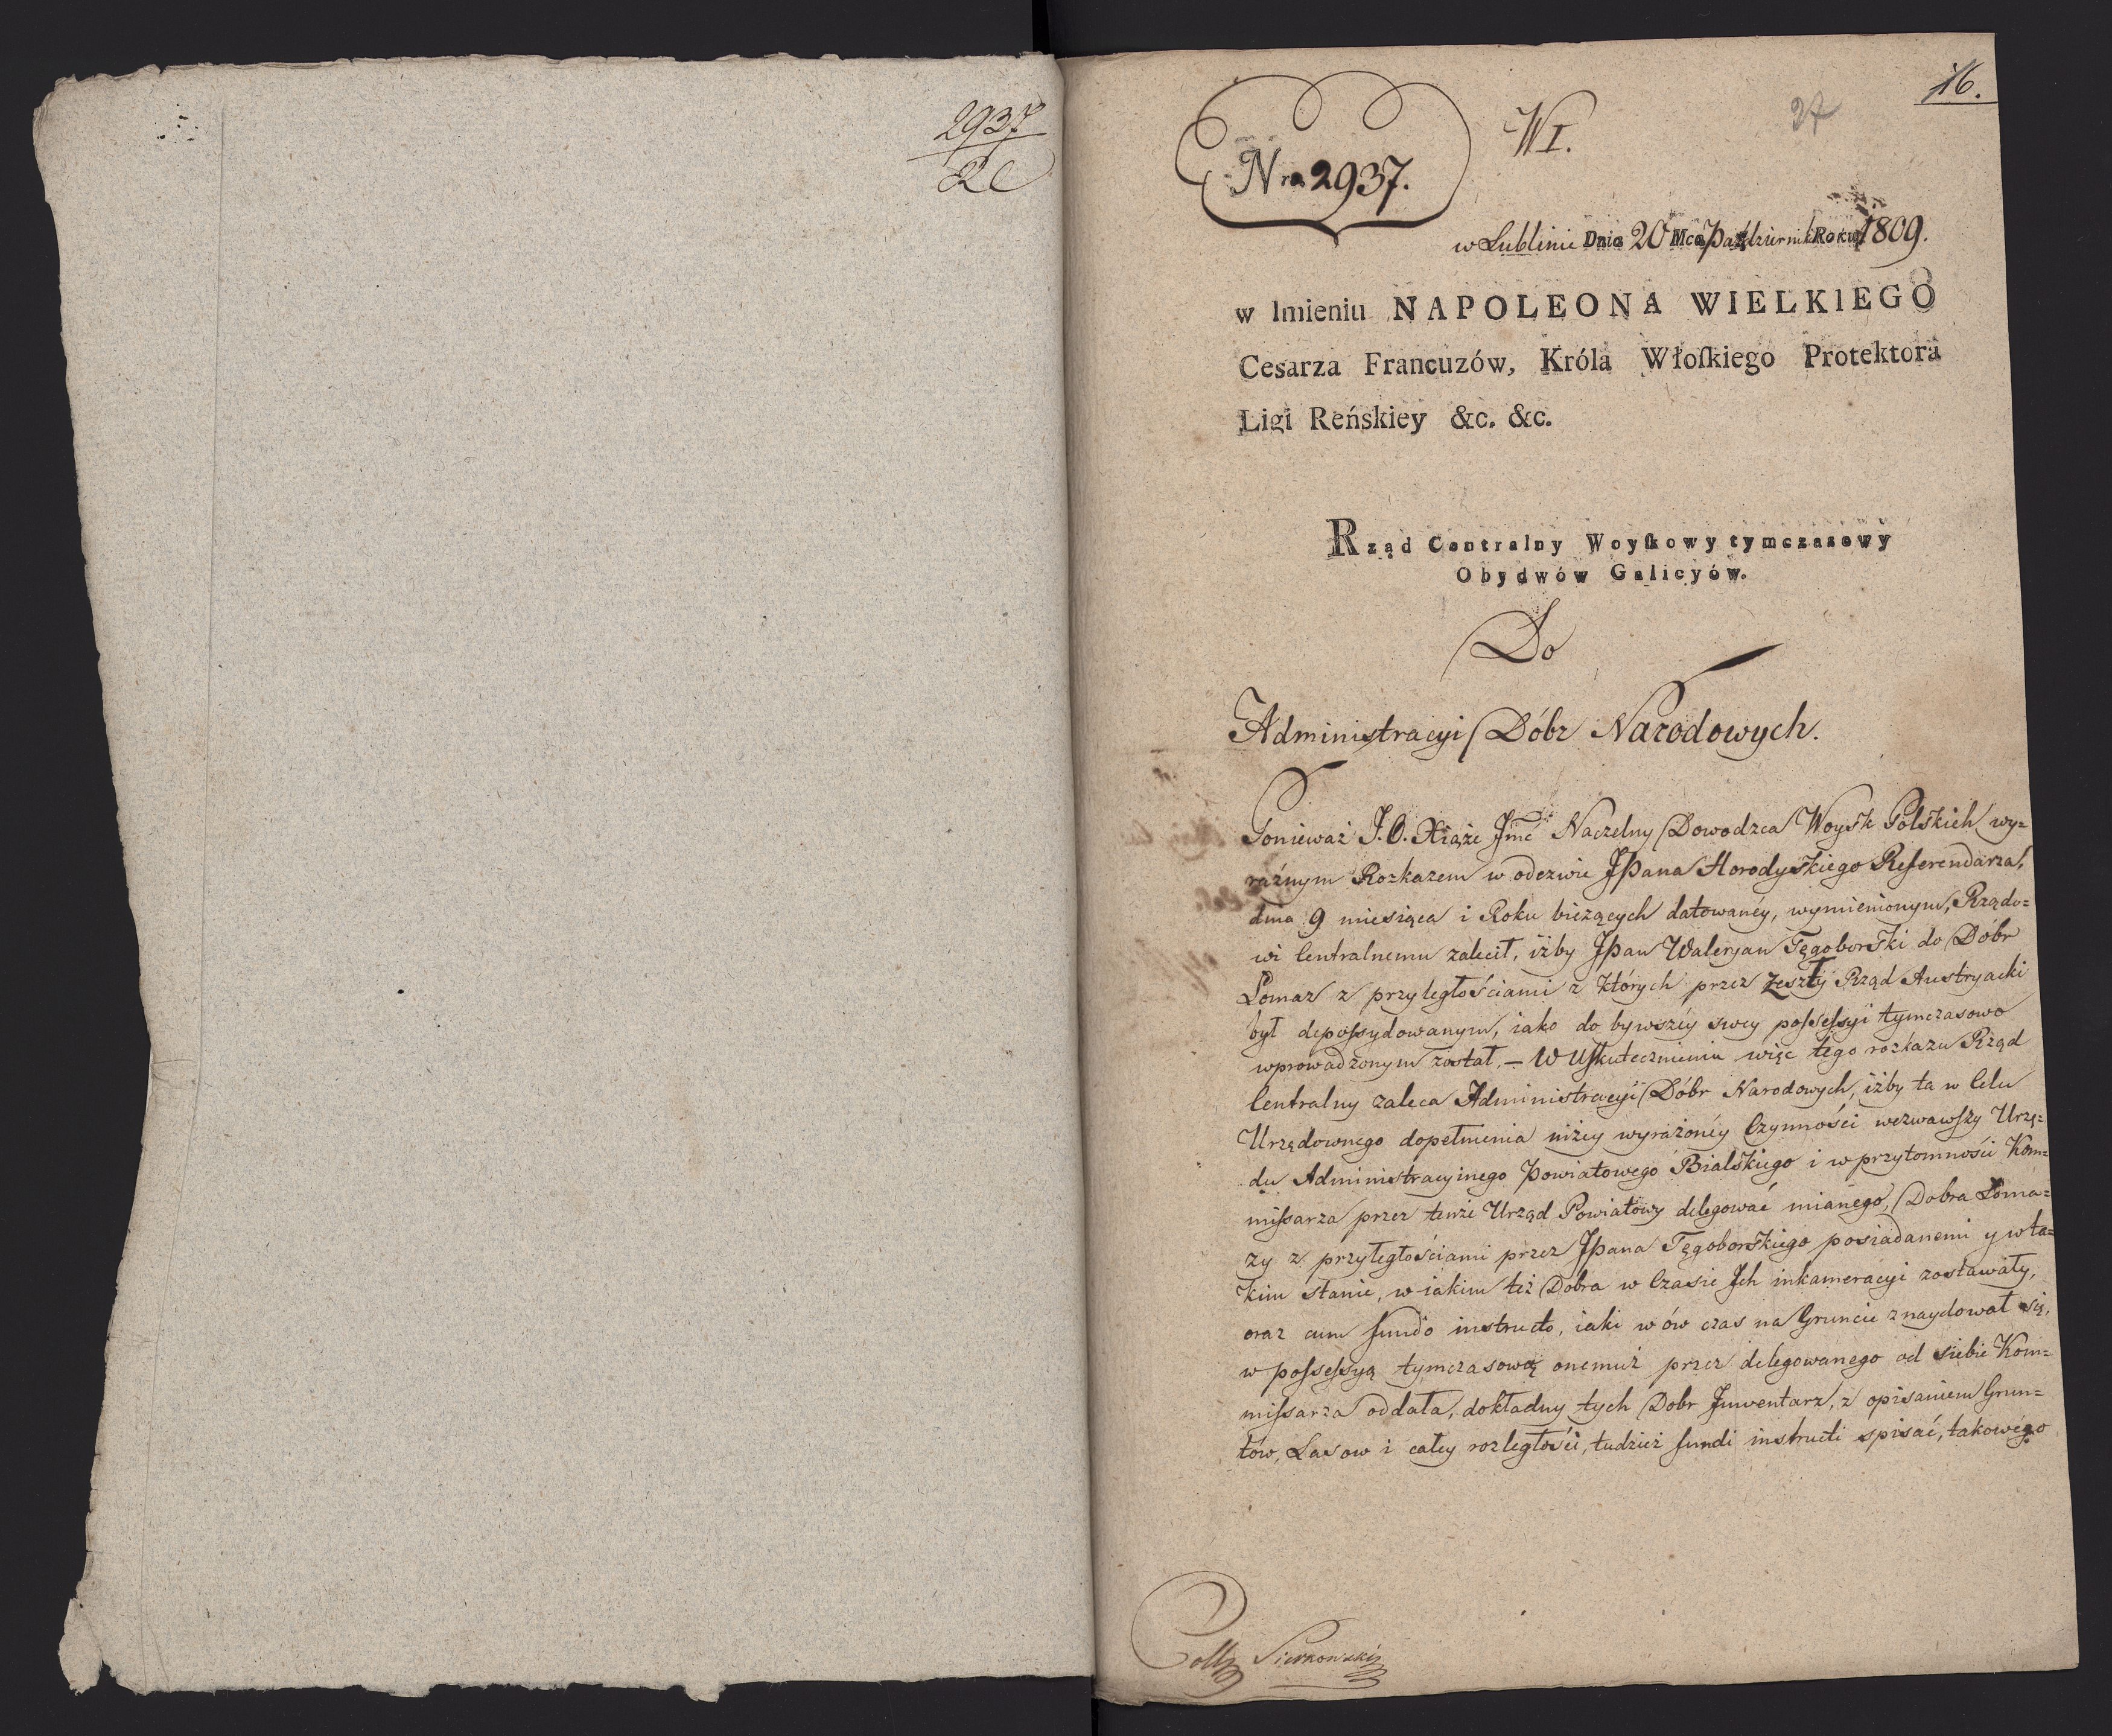 2937
16.
27
W I.
Nro 2937.
w Lublinie Dnia 20 Mca Październik Roku 1809.
w Imieniu NAPOLEONA WIELKIEGO
Cesarza Francuzów, Króla Włoſkiego Protektora
Ligi Reńskiey &c. &c.
Rząd Centralny Woyſkowy tymczasowy
Obydwów Galicyów.
Do
Administracyi Dóbr Narodowych.
Ponieważ J. O. Xiąże Jmć Naczelny Dowodzca Woysk Polskich wy=
raźnym Rozkazem w odezwie JPana Horodyskiego Referendarza,
dnia 9 miesiąca i Roku bieżących datowanéy, wymienionym, Rządo=
wi Centralnemu zalecił, iżby JPan Waleryan Tęgoborski do Dóbr
Łomaz z przyległościami z których przez zeszły Rząd Austryacki
był depoſsydowanym, iako do bywszéy swey poſseſsyi tymczasowo
wprowadzonym został. – W Uſkutecznieniu więc tego rozkazu Rząd
Centralny zaleca Administracyi Dóbr Narodowych, iżby ta w Celu
Urzędownego dopełnienia niżey wyrażonéy Czynności wezwawſzy Urzę=
du Administracyinego Powiatowego Bialskiego i w przytomności Kom=
miſsarza przez tenże Urząd Powiatowy delegować mianego, Dobra Łoma=
zy z przyległościami przez JPana Tęgoborskiego posiadanemi y w ta=
kim stanie, w iakim też Dobra w Czasie Jch inkameracyi zostawały,
oraz cum fundo instructo, iaki w ów czas na Gruncie znaydował się,
w poſseſsyą tymczasową onemuż przez delegowanego od siebie Kom=
miſsarza oddała, dokładny tych Dobr Jnwentarz, z opisaniem Grun=
tów, Lasow i całey rozległości, tudzież fundi instructi spisać, takowego